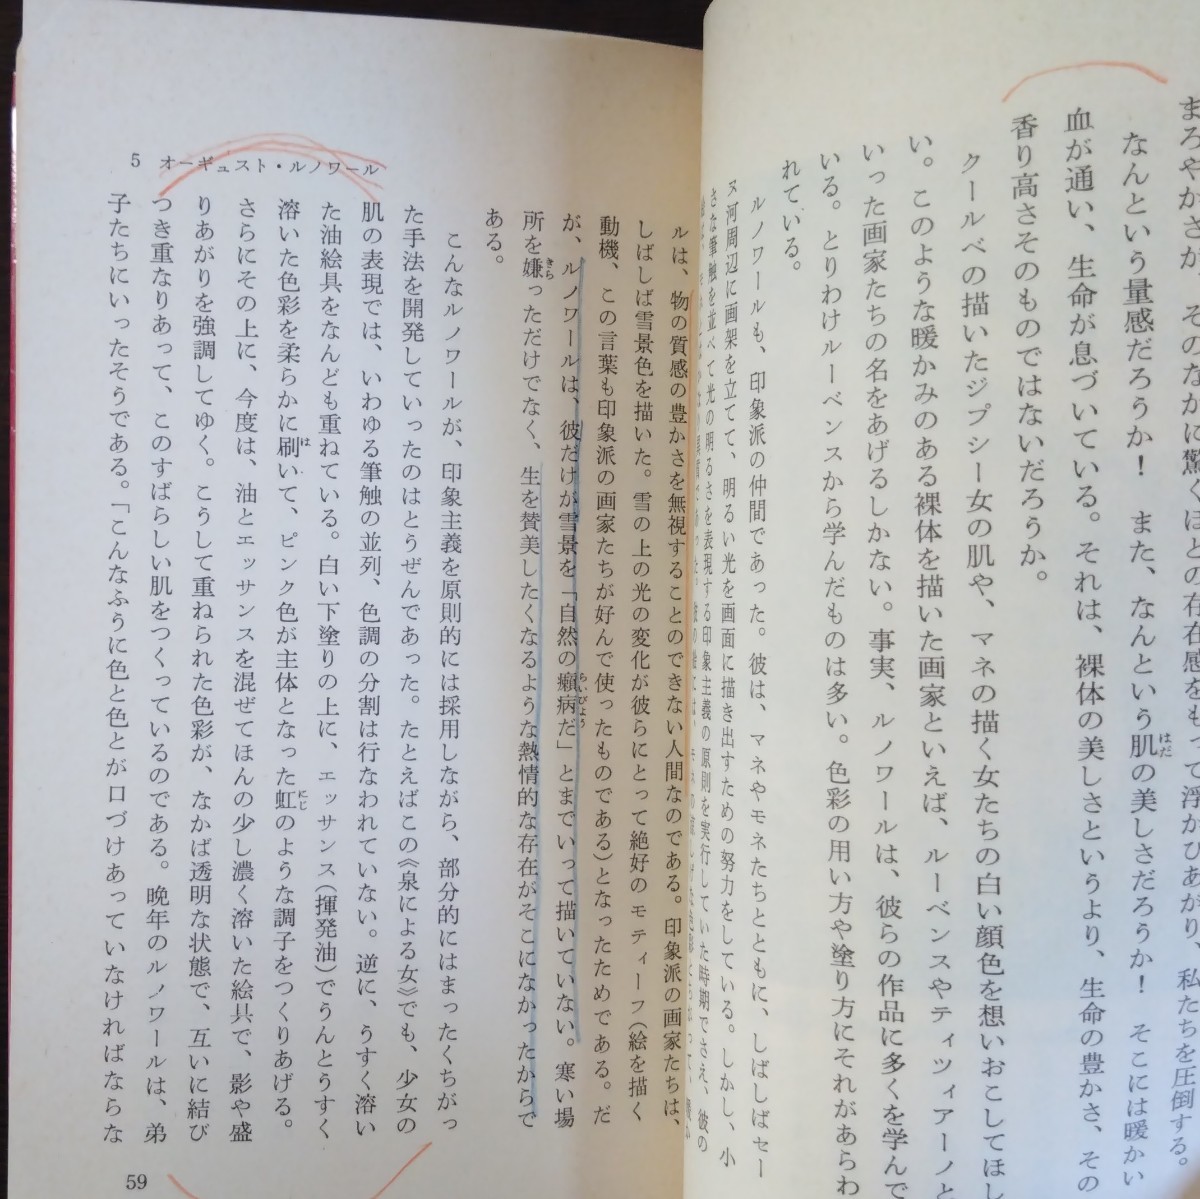 まろやかさが、そのなかに驚くほどの存在感をもって浮かびあがり、私たちを圧倒する。
なんという量感だろうか！　また、なんという肌の美しさだろうか！　そこには暖かい
血が通い、生命が息づいている。それは、裸体の美しさというより、生命の豊かさ、その
香り高さそのものではないだろうか。
クールベの描いたジプシー女の肌や、マネの描く女たちの白い顔色を想いおこしてほし
い。このような暖かみのある裸体を描いた画家といえば、ルーベンスやティツィアーノと
いった画家たちの名をあげるしかない。事実、ルノワールは、彼らの作品に多くを学んで
いる。とりわけルーベンスから学んだものは多い。色彩の用い方や塗り方にそれがあらわ
れている。
ルノワールも、印象派の仲間であった。彼は、マネやモネたちとともに、しばしばセー
ヌ河周辺に画架を立てて、明るい光を画面に描き出すための努力をしている。しかし、小
さな筆触を並べて光の明るさを表現する印象主義の原則を実行していた時期でさえ、彼の
ルは、物の質感の豊かさを無視することのできない人間なのである。印象派の画家たちは、
しばしば雪景色を描いた。雪の上の光の変化が彼らにとって絶好のモティーフ（絵を描く
動機、この言葉も印象派の画家たちが好んで使ったものである）となったためである。だ
が、ルノワールは、彼だけが雪景を「自然の癩病だ」とまでいって描いていない。寒い場
所を嫌っただけでなく、生を賛美したくなるような熱情的な存在がそこになかったからで
ある。
こんなルノワールが、印象主義を原則的には採用しながら、部分的にはまったくちがっ
た手法を開発していったのはとうぜんであった。たとえばこの《泉による女》でも、少女の
肌の表現では、いわゆる筆触の並列、色調の分割は行なわれていない。逆に、うすく溶い
た油絵具をなんども重ねている。白い下塗りの上に、エッサンス（揮発油）でうんとうすく
溶いた色彩を柔らかに刷いて、ピンク色が主体となった虹のような調子をつくりあげる。
さらにその上に、今度は、油とエッサンスを混ぜてほんの少し濃く溶いた絵具で、影や盛
りあがりを強調してゆく。こうして重ねられた色彩が、なかば透明な状態で、互いに結び
つき重なりあって、このすばらしい肌をつくっているのである。晩年のルノワールは、弟
子たちにいったそうである。「こんなふうに色と色とが口づけあっていなければならな
5　オーギュスト・ルノワール
59